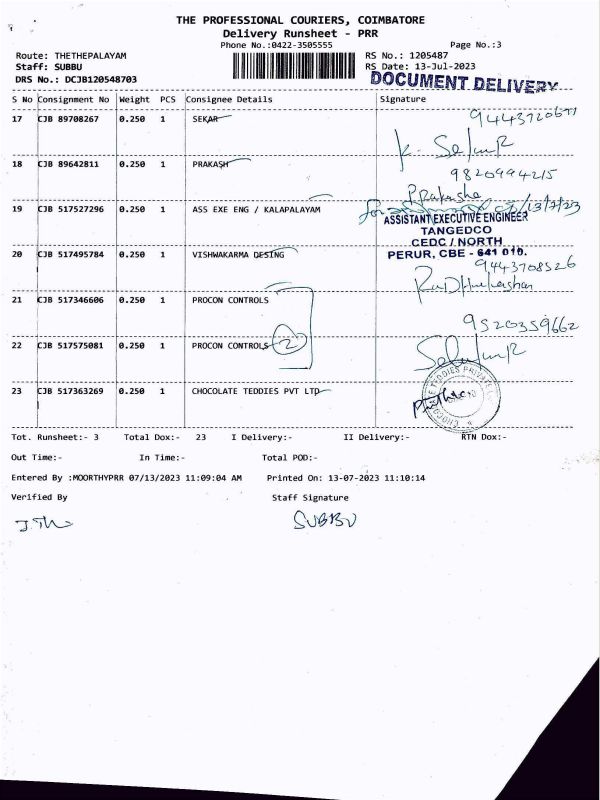 THE PROFESSIONAL COURIERS, COIMBATORE
Delivery Runsheet - PRR
Phone No.:0422-3505555
Page No.:3
Route: THETHEPALAYAM
RS No.: 1205487
Staff: SUBBU
RS Date: 13-Jul-2023
DRS No.: DCJB120548703
DOCUMENT DELIVERY
S No Consignment No Weight PCS Consignee Details Signature
17 CJB 89708267 0.250 1 SEKAR
K. Sekar
18 CJB 89642811 0.250 1 PRAKASH
9820994215
Prakasha
19 CJB 517527296 0.250 1 ASS EXE ENG / KALAPALAYAM
for 13/7/23
ASSISTANT EXECUTIVE ENGINEER
TANGEDCO
CEDC / NORTH
PERUR, CBE - 641 010.
20 CJB 517495784 0.250 1 VISHWAKARMA DESING
9443708526
21 CJB 517346606 0.250 1 PROCON CONTROLS
9520359662
22 CJB 517575081 0.250 1 PROCON CONTROLS 2
23 CJB 517363269 0.250 1 CHOCOLATE TEDDIES PVT LTD
Tot. Runsheet:- 3 Total Dox:- 23 I Delivery:- II Delivery:- RTN Dox:-
Out Time:- In Time:- Total POD:-
Entered By :MOORTHYPRR 07/13/2023 11:09:04 AM Printed On: 13-07-2023 11:10:14
Verified By Staff Signature
SUBBU